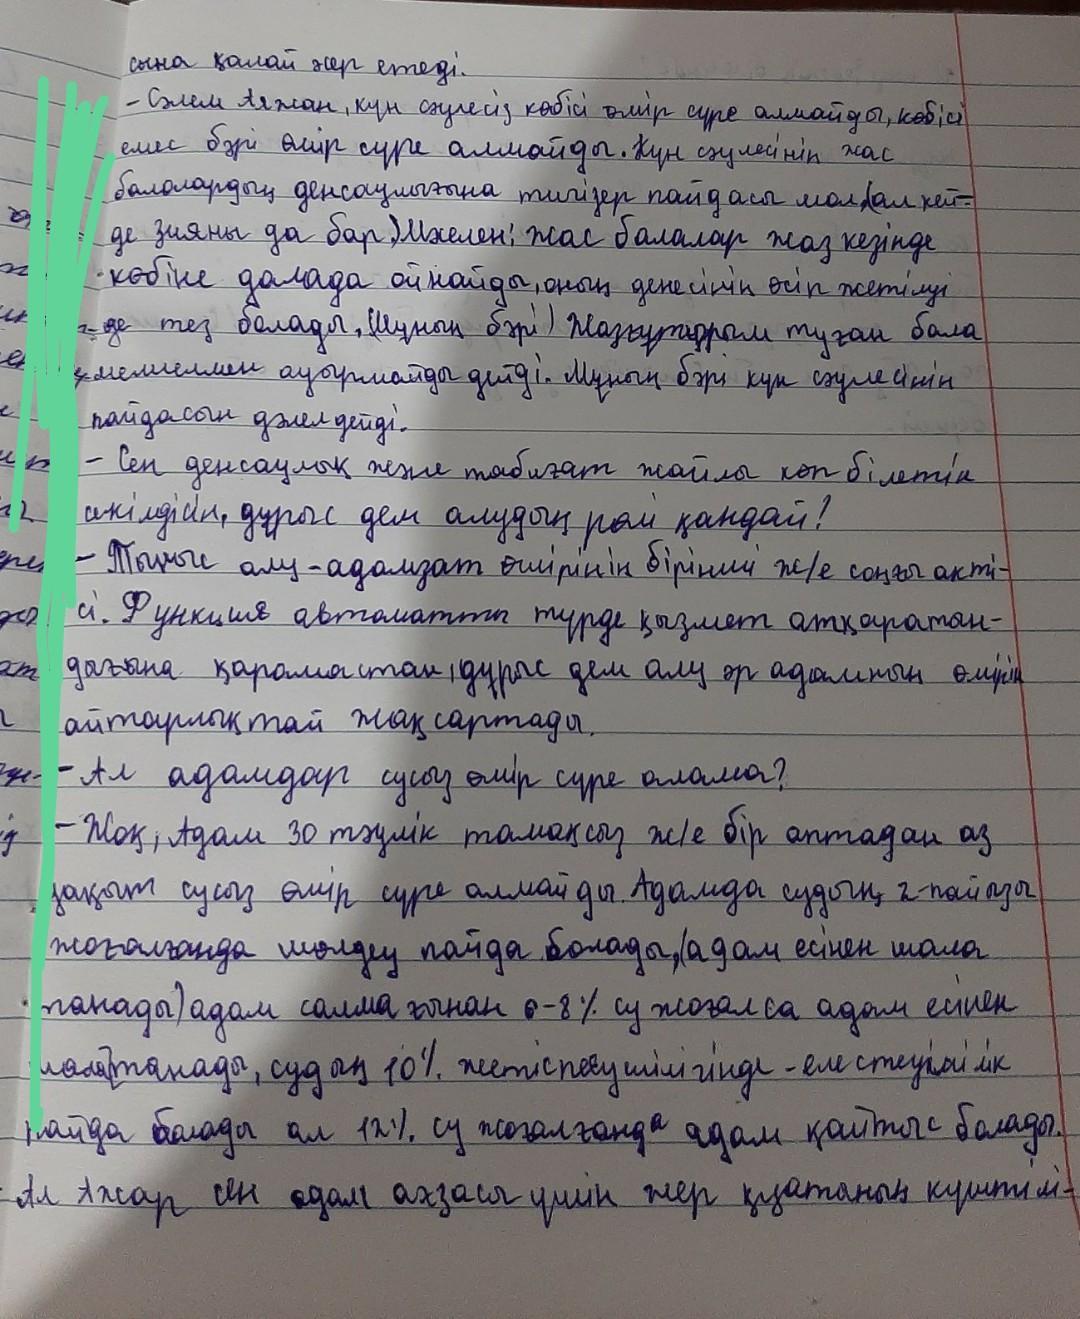 сына қалай әсер етеді.
- Сәлем Аяжан, күн сәулесіз көбісі өмір сүре алмайды, көбісі
емес бәрі өмір сүре алмайды. Күн сәулесінің жас
балалардың денсаулығына тигізер пайдасы мол, (ал кей-
де зияны да бар) Мәселен: жас балалар жаз кезінде
көбіне далада ойнайды, оның денесінің өсіп жетілуі
де тез болады, (Мұның бәрі) туған бала
ауырмайды дейді. Мұның бәрі күн сәулесінің
пайдасын дәлелдейді.
- Сен денсаулық және табиғат жайлы көп білетін
дұрыс дем алудың рөлі қандай?
- Тыныс алу - адамзат өмірінің бірінші ж/е соңғы акті-
сі. Функция автоматты түрде қызмет атқаратын-
дығына қарамастан, дұрыс дем алу әр адамның өмірін
айтарлықтай жақсартады.
- Ал адамдар сусыз өмір сүре алама?
- Жоқ, Адам 30 тәулік тамақсыз ж/е бір аптадан аз
уақыт сусыз өмір сүре алмайды. Адамда судың 2-пайызы
жоғалғанда шөлдеу пайда болады, (адам есінен шала
танады) адам салмағынан 6-8% су жоғалса адам есінен
танады, судың 10% жетіспеушілігінде -
пайда болады ал 12% су жоғалғанда адам қайтыс болады.
- Ал Ажар сен адам ағзасы үшін жер